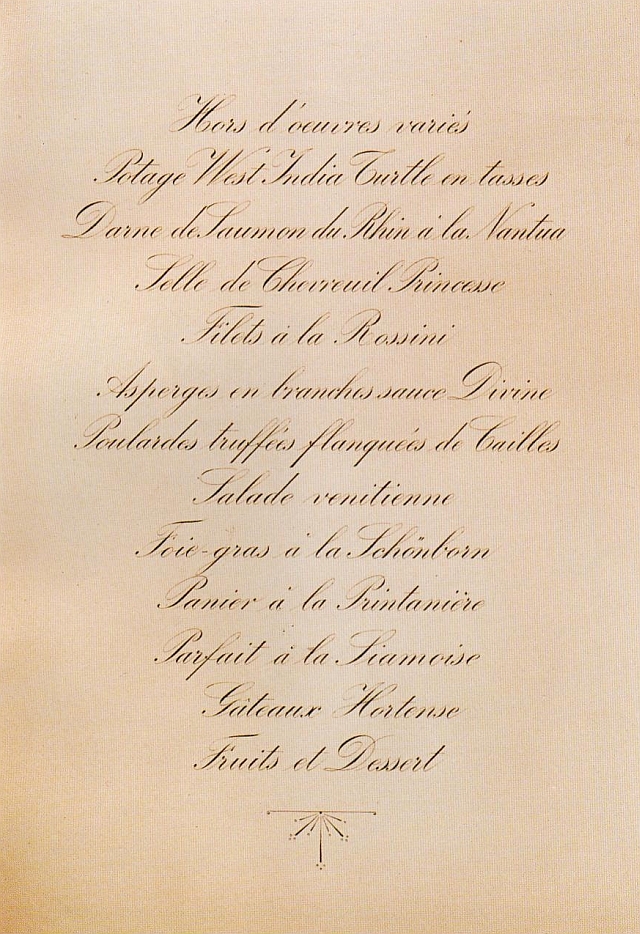 Hors d'oeuvres variés
Potage West India Turtle en tasses
Darne de Saumon du Rhin à la Nantua
Selle de Chevreuil Princesse
Filets à la Rossini
Asperges en branches sauce Divine
Poulardes truffées flanquées de Cailles
Salade venitienne
Foie-gras à la Schönborn
Panier à la Printanière
Parfait à la Siamoise
Gâteaux Hortense
Fruits et Dessert